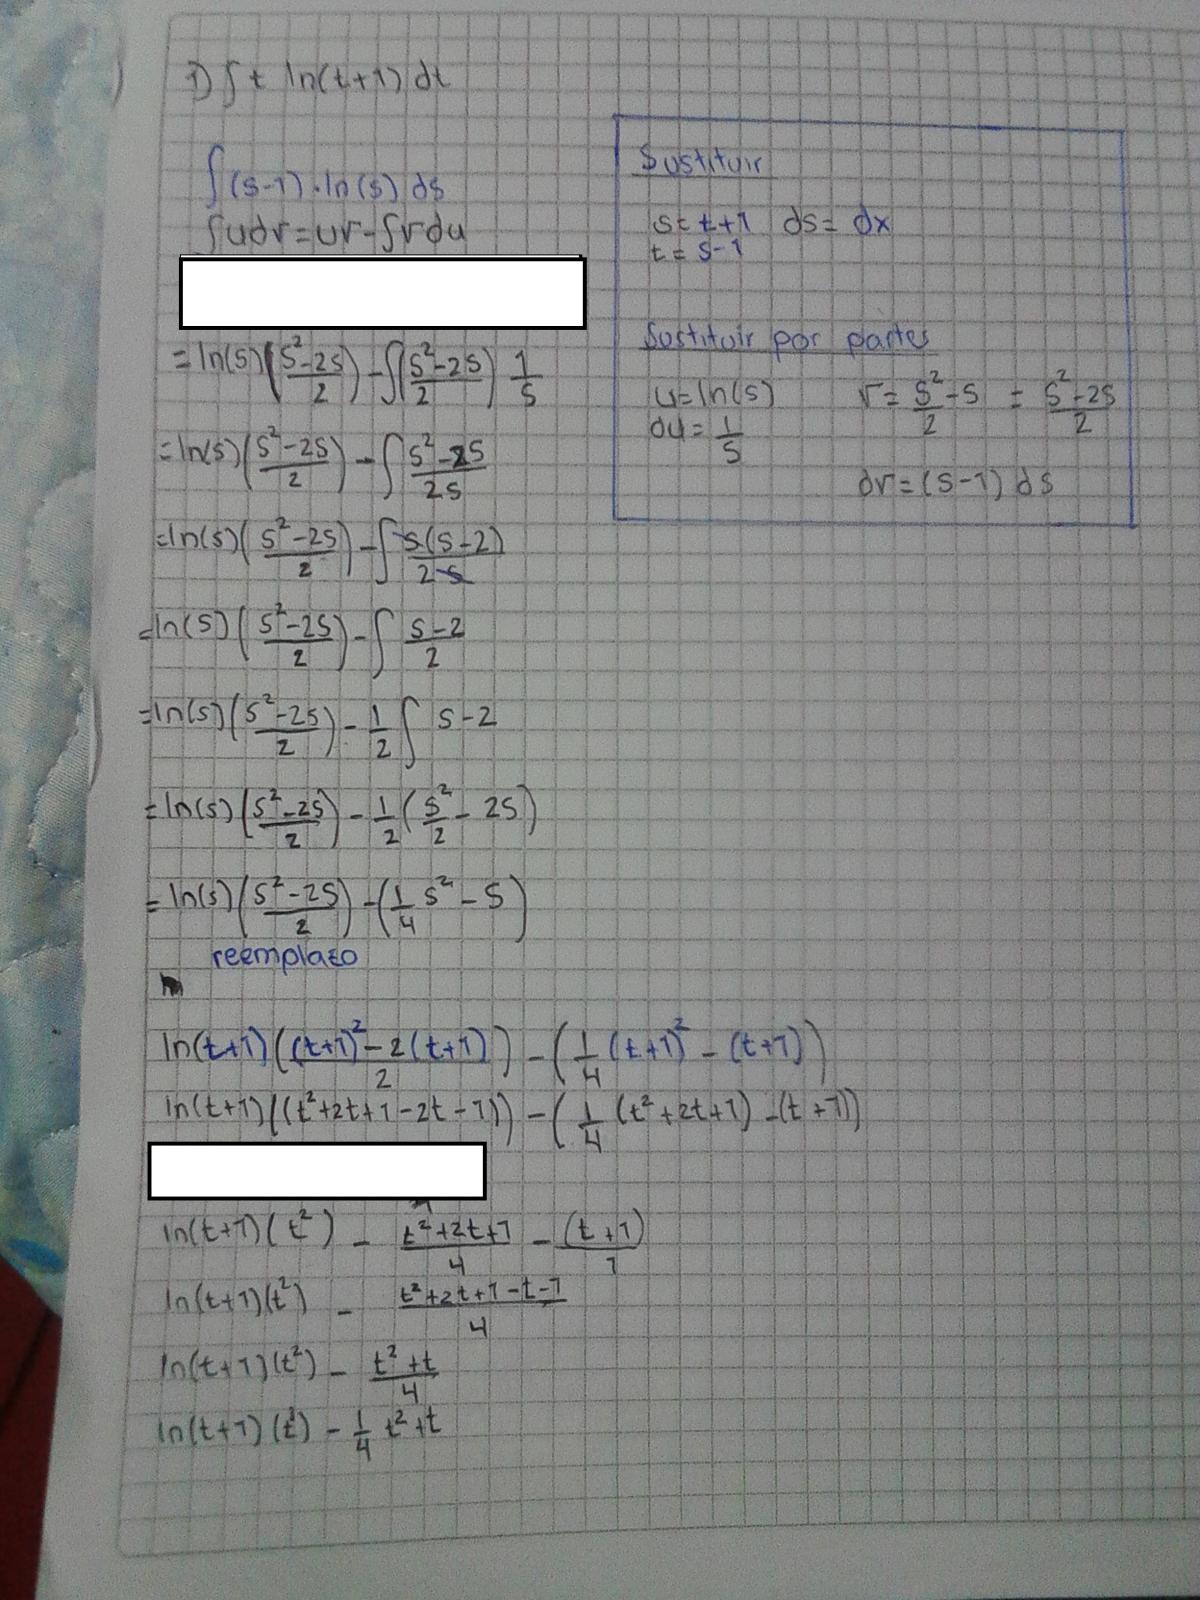 1) ∫ t ln(t+1) dt
∫(s-1)·ln(s) ds
∫udv=uv-∫vdu
=ln(s)((s²-2s)/2) - ∫((s²-2s)/2) 1/s
=ln(s)((s²-2s)/2) - ∫(s²-2s)/2s
=ln(s)((s²-2s)/2) - ∫s(s-2)/2s
=ln(s)((s²-2s)/2) - ∫(s-2)/2
=ln(s)((s²-2s)/2) - 1/2 ∫ s-2
=ln(s)((s²-2s)/2) - 1/2(s²/2 - 2s)
=ln(s)((s²-2s)/2) - (1/4 s² - s)
reemplazo
ln(t+1)(((t+1)²-2(t+1))/2) - (1/4(t+1)² - (t+1))
ln(t+1)((t²+2t+1-2t-1)) - (1/4(t²+2t+1) -(t+1))
ln(t+1)(t²) - (t²+2t+1)/4 - (t+1)/1
ln(t+1)(t²) - (t²+2t+1-t-1)/4
ln(t+1)(t²) - (t²+t)/4
ln(t+1)(t²) - 1/4 t²+t
Sustituir
s=t+1 ds=dx
t=s-1
Sustituir por partes
u=ln(s) v=s²/2-s = (s²-2s)/2
du=1/s
dv=(s-1)ds